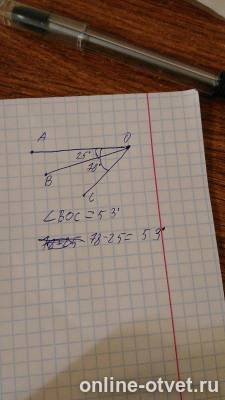 A O
25°
78°
B
C
∠BOC = 53°
78-25 = 53°
online-otvet.ru